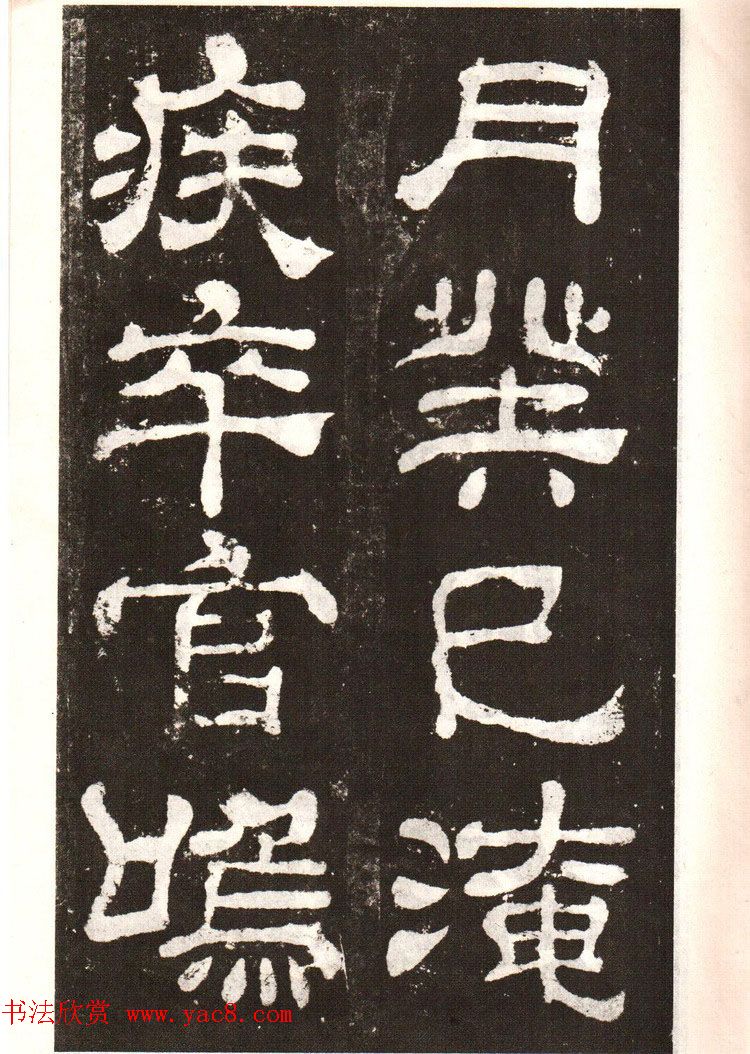 月癸巳淹
疾卒官嗚
书法欣赏 www.yac8.com